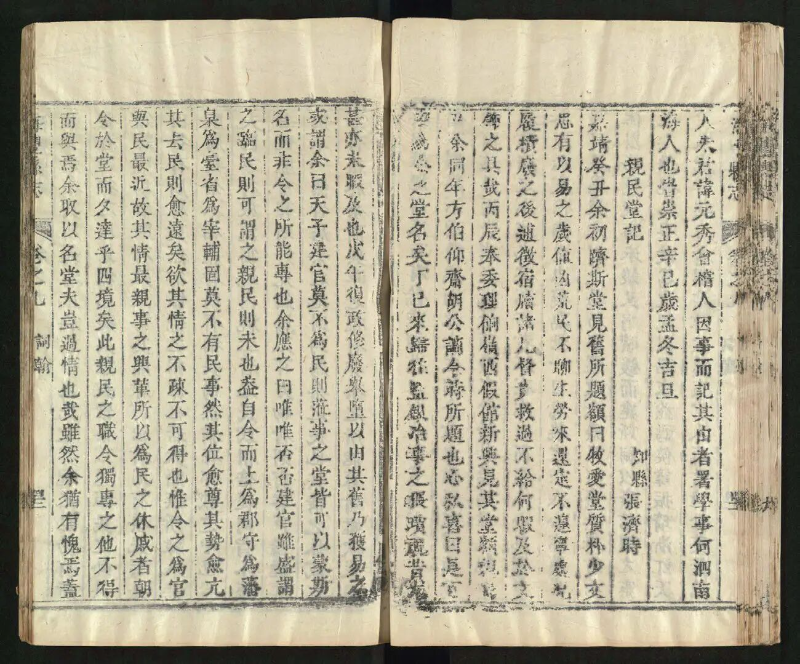 人朱君諱元秀會稽人因事而記其由者署學事何泗南
海人也嘗崇正辛巳歲孟冬吉旦
親民堂記
知縣張濟時
嘉靖癸丑余初濟斯堂見舊所題額曰做愛堂質朴少文
思有以易之歲値凶荒民不聊生勞來還定不遑寧處
積廢之後逋徵宿牘救過不給何暇及於文
之具哉丙辰奉委理餉嶺西假館新興見其堂額
余同年方伯仰齋胡公諭令蔣所題也心私喜曰是
之堂名矣丁巳來歸
甚亦未暇及也戊午復政修廢舉墜以由其舊乃獲易之
或謂余曰天子建官莫不爲民則蒞事之堂皆可以蒙斯
名而非令之所能專也余應之曰唯唯否否建官雖盛謂
之臨民則可謂之親民則未也蓋自令而上爲郡守爲藩
臬爲臺省爲宰輔固莫不有民事然其位愈尊其勢愈亢
其去民則愈遠矣欲其情之不疎不可得也惟令之爲官
與民最近故其情最親事之興革所以爲民之休戚者朝
令於堂而夕達乎四境矣此親民之職令獨專之他不得
而與焉余取以名堂夫豈過情也哉雖然余猶有愧焉蓋
縣志
卷之九
詞翰